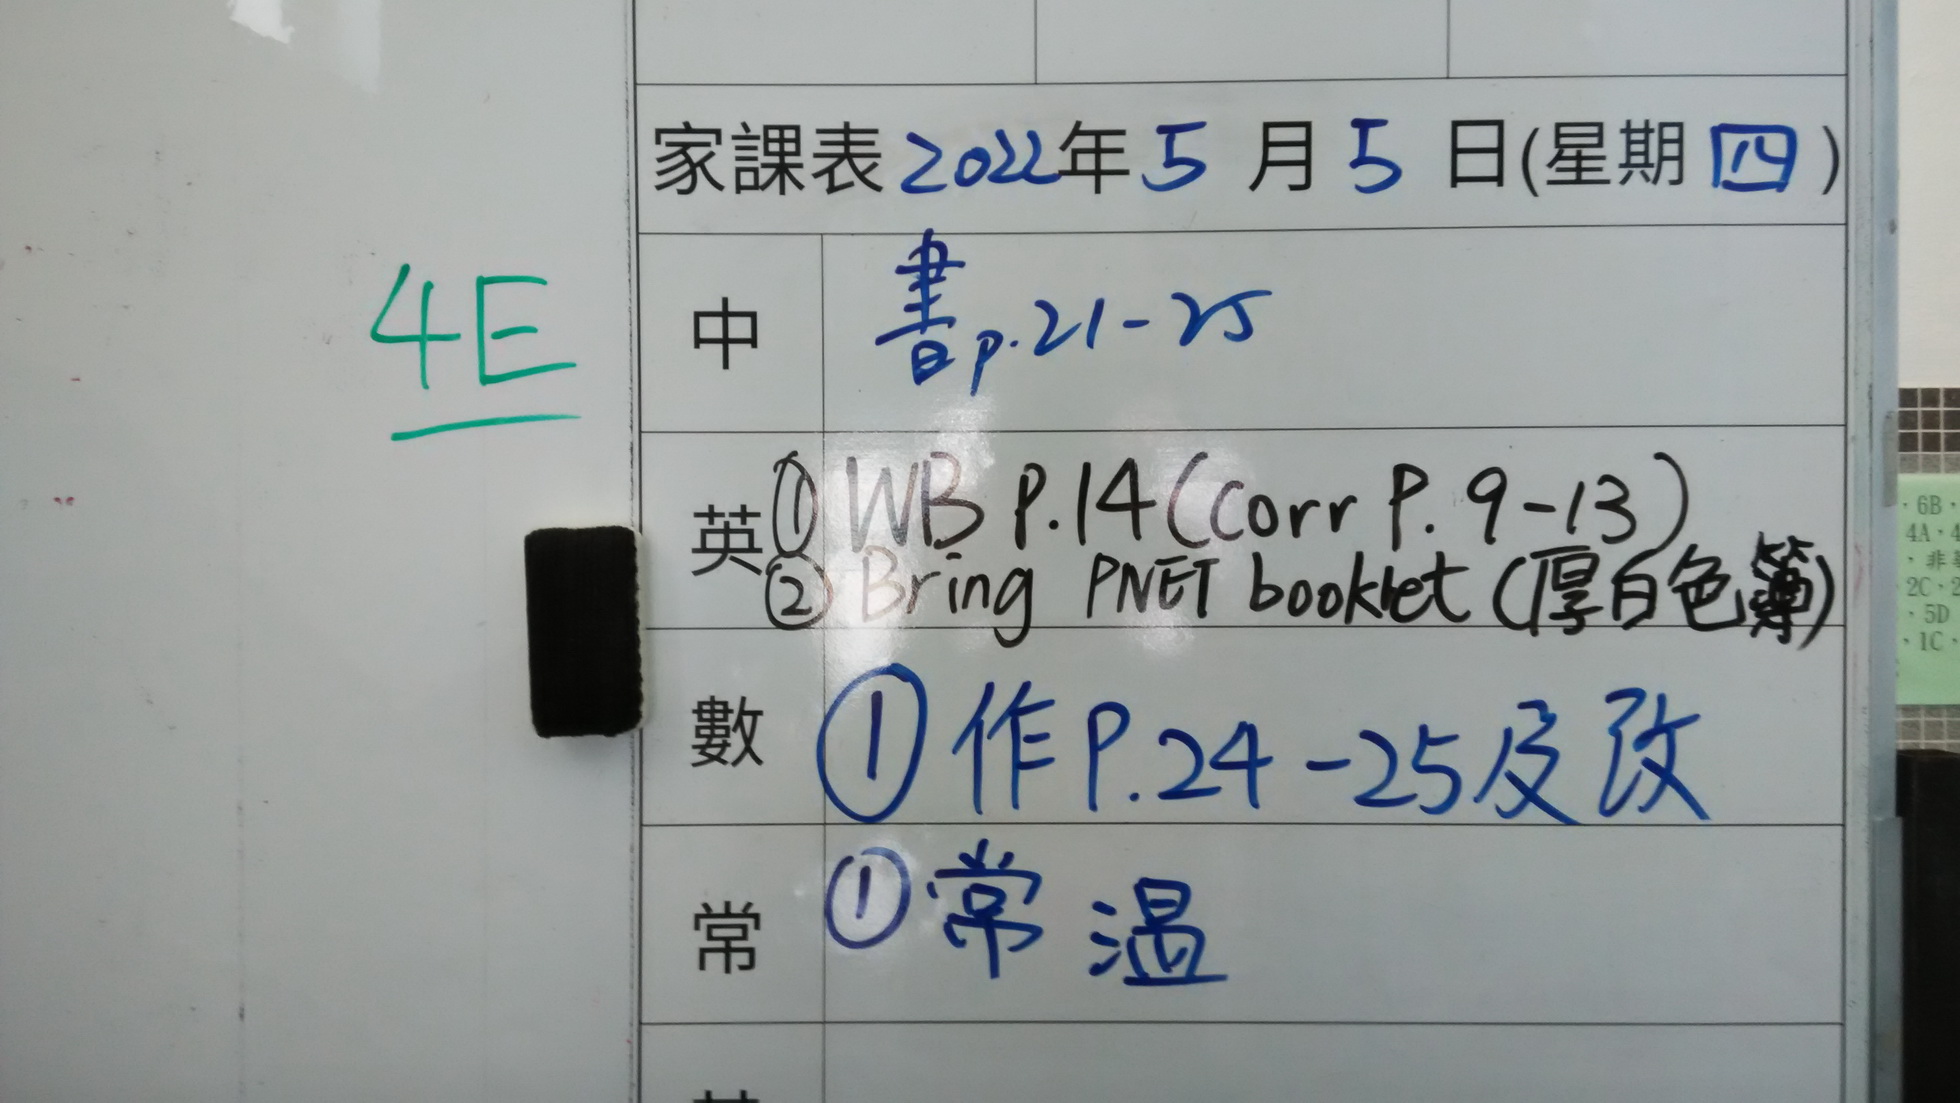 家課表 2022年 5 月 5 日(星期 四)
4E
中 書 p.21-25
英 ① WB P.14 (Corr P. 9-13)
② Bring PNET booklet (厚白色簿)
數 ① 作 P.24-25及改
常 ① 常溫
6B
4A
非
2C
5D
1C